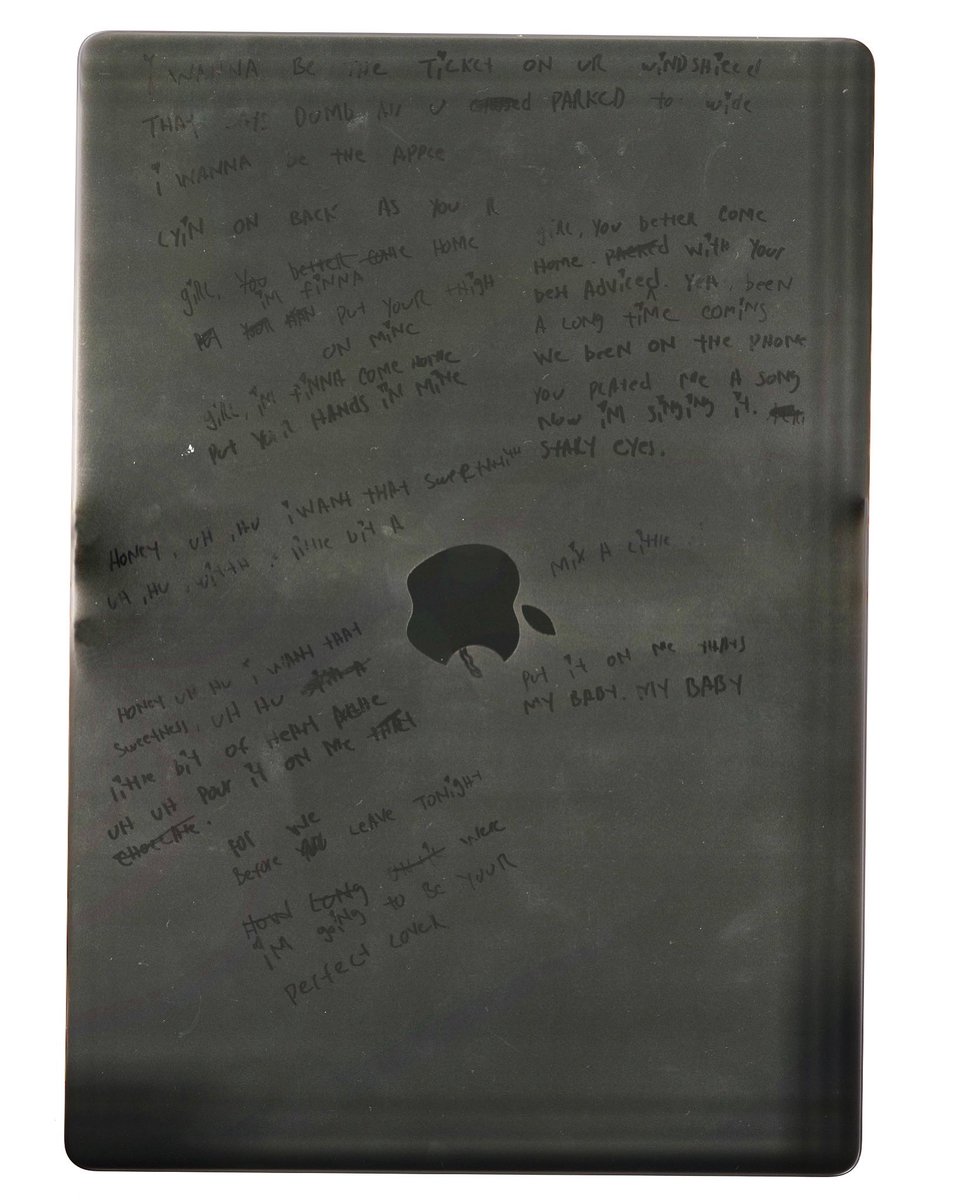 i WANNA BE THE TiCKET ON UR WiNDSHiELD
THAT SAYS DUMB ALL U PARKED to wide
i WANNA be tHE APPLE
LYiN ON BACK AS YOU R
giRL, YOU better come HOME
iM FiNNA
PUT YOUR tHigH
ON MiNE
giRL, iM FiNNA COME HOME
PUt YOUR HANDS iN MiNE
giRL, YOU better come
Home. PARKed WitH YOUR
best ADViced. YEA, been
A LONG tiME COMiNg
We beeN ON tHE PHONE
YOU PLAYED Me A SONG
NOW iM SiNgiNg it.
StARY eYes.
HONEY, UH, HU i WANT THAT
UH, HU, WitH A little bit A
Mix A Little
HONEY UH HU i WANt tHAt
SweetNess, UH HU
little bit OF HEARt
UH UH POUR it ON Me
CHOCLATE.
PUt it ON Me tHAtS
MY BABY. MY BABY
FOR WE
BeFore LEAVE TONigHt
HOW LONG WERE
iM gOiNg to Be YOUR
PeRFect LOVER